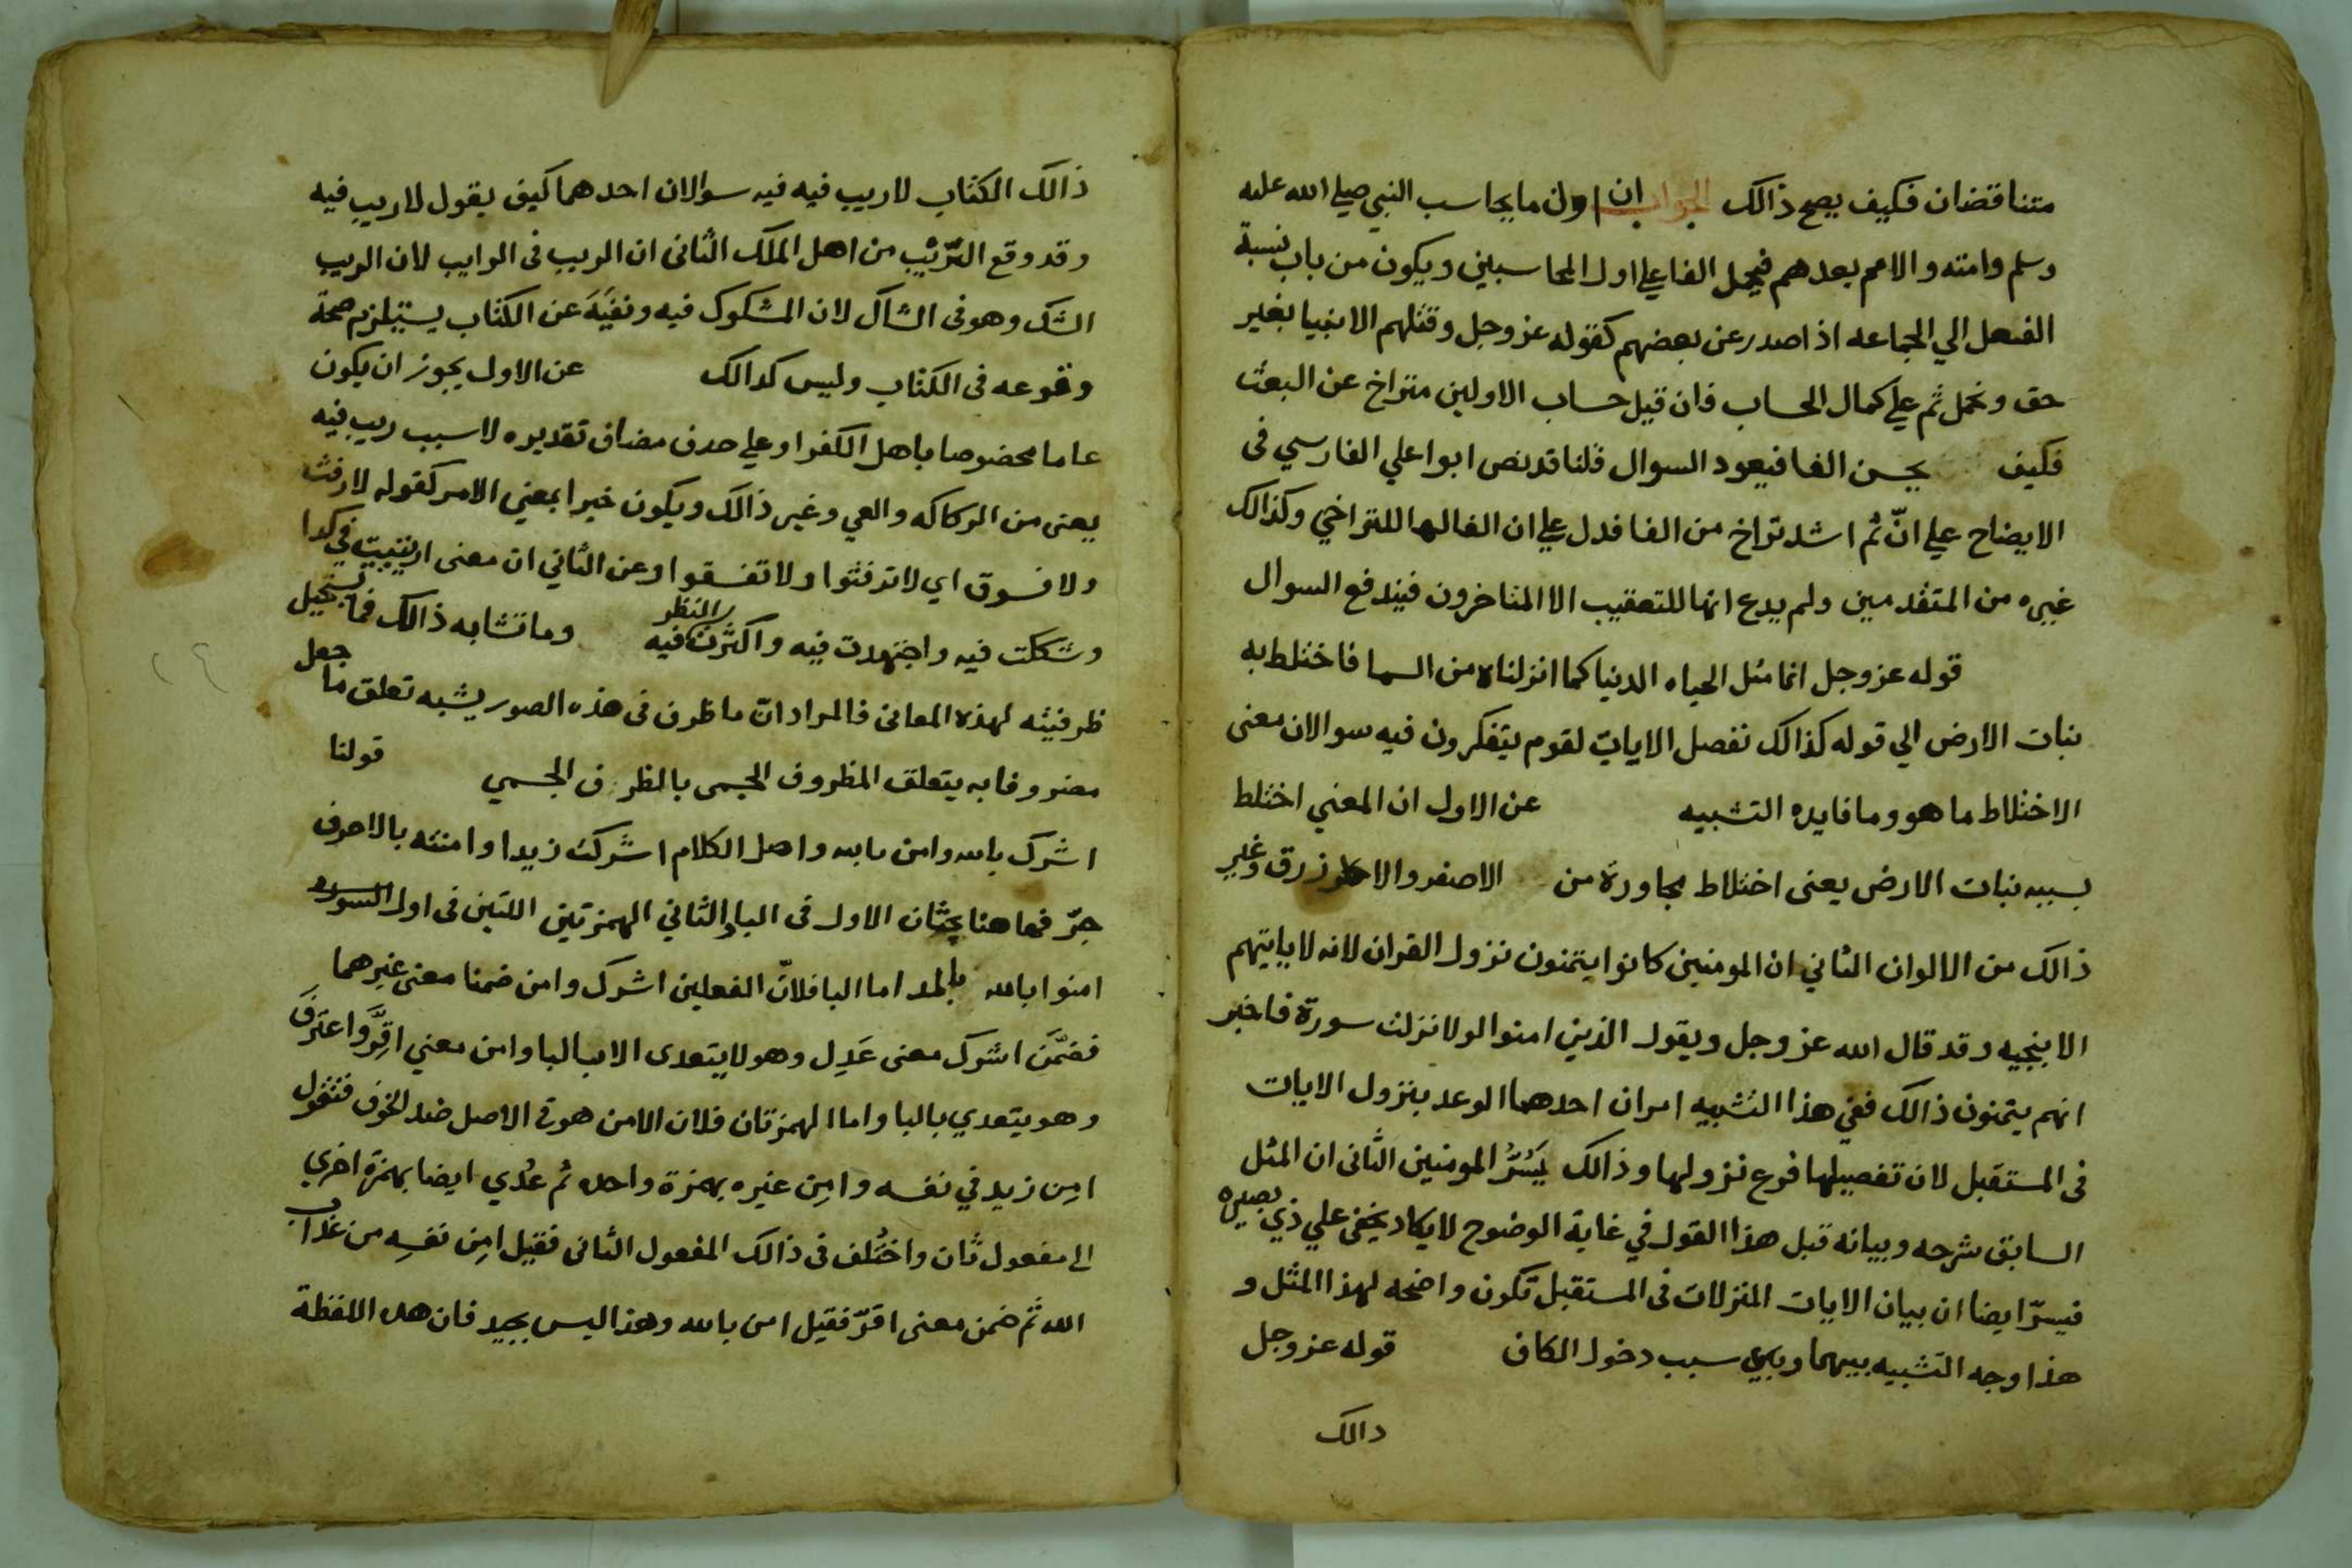 متناقضان فكيف يصح ذالك الجواب ان اول ما يحاسب النبي صلي الله عليه
وسلم وامته والامم بعدهم فيحمل الفا علي اول المحاسبين ويكون من باب نسبة
الفعل الي الجماعه اذا صدر عن بعضهم كقوله عز وجل وقتلهم الانبيا بغير
حق ونحمل ثم علي كمال الحساب فان قيل حساب الاولين متراخ عن البعث
فكيف يحسن الفا فيعود السوال قلنا قد نص ابوا علي الفارسي في
الايضاح علي انّ ثم اشد تراخ من الفا فدل علي ان الفا لها للتراخي وكذالك
غيره من المتقدمين ولم يدع انها للتعقيب الا المتاخرون فيندفع السوال
قوله عز وجل انما مثل الحياه الدنيا كما انزلناه من السما فاختلط به
نبات الارض الي قوله كذالك نفصل الايات لقوم يتفكرون فيه سوالان معنى
الاختلاط ما هو وما فايده التشبيه عن الاول ان المعني اختلط
بسببه نبات الارض يعنى اختلاط مجاورة من الاصفر والا زرق وغير
ذالك من الالوان الثاني ان المومنين كانوا يتمنون نزول القران لانه لا ياتيهم
الا بنجيه وقد قال الله عز وجل ويقول الذين امنوا لولا نزلت سورة فاخبر
انهم يتمنون ذالك ففي هذا التشبيه امران احدهما الوعد بنزول الايات
في المستقبل لان تفصيلها فرع نزولها وذالك يَسُرُّ المومنين الثانى ان المثل
السابق شرحه وبيانه قبل هذا القول في غاية الوضوح لا يكاد يخفى علي ذي بصيره
فيسرّ ايضا ان بيان الايات المنزلات في المستقبل تكون واضحه لهذا المثل و
هذا وجه التشبيه بينهما وبه سبب دخول الكاف قوله عز وجل
دالك
ذالك الكتاب لا ريب فيه فيه سوالان احدهما كيف يقول لا ريب فيه
وقد وقع الترّيب من اهل الملك الثانى ان الريب في الرايب لان الريب
الشك وهو في الشاك لان المشكوك فيه ونفيَهَ عن الكتاب يستلزم صحة
وقوعه في الكتاب وليس كدالك عن الاول يجوز ان يكون
عاما مخصوصا باهل الكفر او علي حدف مضاف تقديره لا سبب ريب فيه
يعنى من الركاكه والعي وغير ذالك ويكون خبرا بمعني الامر كقوله لا رفث
ولا فسوق اي لا ترفثوا ولا تفسقوا وعن الثاني ان معنى ارتبت في كدا
وشككت فيه واجتهدت فيه واكثرت النظر فيه وما تشابه ذالك فما يستحيل
ظرفيته لهذه المعانى فالمراد انّ ما ظرف في هذه الصور يشبه تعلق ما جعل
مضروفا به يتعلق المظروف الجسمى بالظرف الجسمي قولنا
اشرك بالله وامن بالله واصل الكلام اشركت زيدا وامنته بالا حرف
جرّ فهاهنا بحثان الاول في البا والثاني الهمزتين اللتين في اول السوره
امنوا بالله بالمد اما البا فلانّ الفعلين اشرك وامن ضمنا معنى غيرهما
فضمَّن اشرك معنى عَدِل وهو لا يتعدى الا بالبا وامن معني اقِرَّ واعترفَ
وهو يتعدي بالبا واما الهمزتان فلان الامن هو في الاصل ضد الخوف فتقول
امِن زيد في نفسه وامِن غيره بهمزة واحده ثم عدُي ايضا بهمزة اخري
الى مفعول ثان واختُلف في ذالك المفعول الثانى فقيل امِن نفسِه من عذاب
الله ثم ضمن معنى اقرّ فقيل امن بالله وهذا ليس بجيد فان هده اللفظة